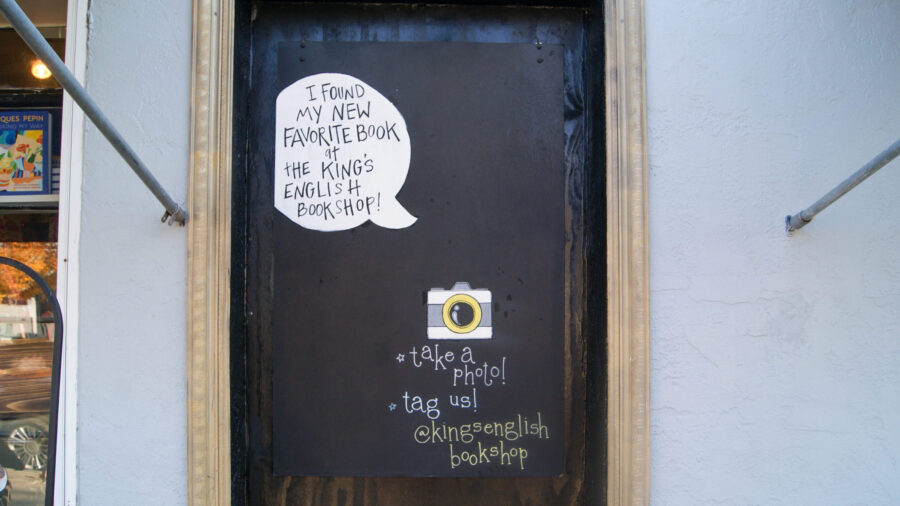 QUES PEPIN
KING MY WAY
I FOUND
MY NEW
FAVORITE BOOK
at
the KING'S
ENGLISH
BOOKSHOP!
take a
photo!
tag us!
@kingsenglish
bookshop